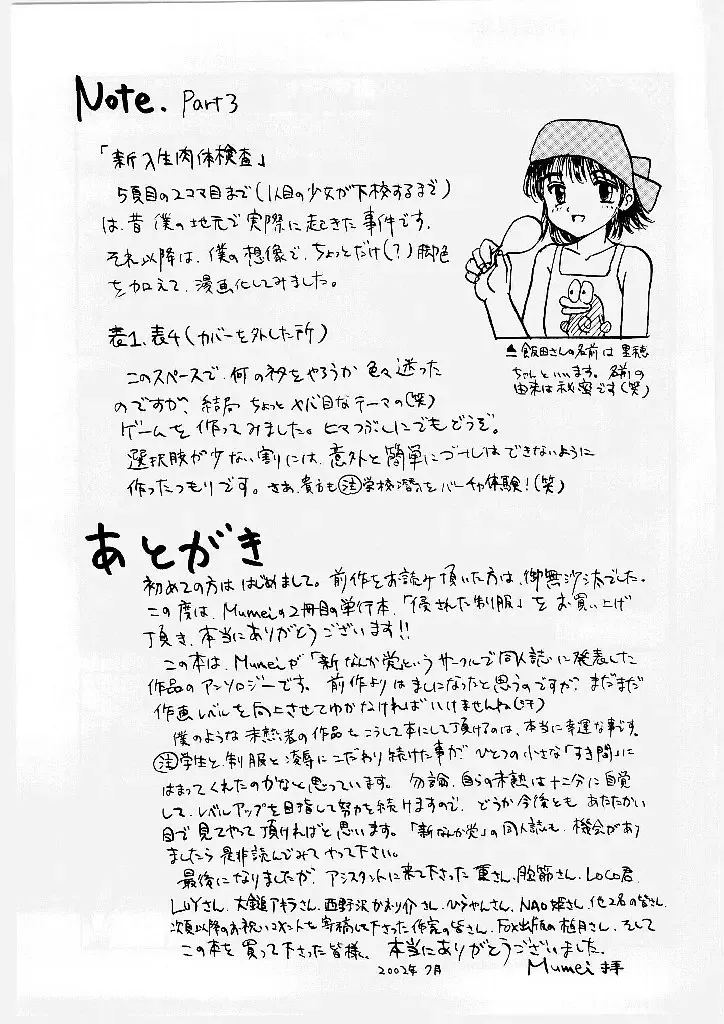 Note. Part3
「新入生肉体検査」
5頁目の2コマ目まで(1人目の少女が下校するまで)
は、昔 僕の地元で実際に起きた事件です。
それ以降は、僕の想像で、ちょっとだけ(?)脚色
を加えて、漫画化してみました。
▲飯田さんの名前は 里穂
ちゃんといいます。名前の
由来は秘密です(笑)
表1、表4(カバーを外した所)
このスペースで、何のネタをやろうか 色々迷った
のですが、結局 ちょっとヤバ目なテーマの(笑)
ゲームを作ってみました。ヒマつぶしにでもどうぞ。
選択肢が少ない割りには、意外と簡単にゴールはできないように
作ったつもりです。さあ、貴方も 学校潜入をバーチャ体験!(笑)
あとがき
初めての方は はじめまして。前作をお読み頂いた方は、御無沙汰でした。
この度は、Mumeiの2冊目の単行本、「侵された制服」を お買い上げ
頂き、本当にありがとうございます!!
この本は、Mumeiが「新なんか党」というサークルで同人誌に発表した
作品のアンソロジーです。前作よりはましになったと思うのですが、まだまだ
作画レベルを向上させてゆかなければいけませんね(汗)
僕のような未熟者の作品を こうして本にして頂けるのは、本当に幸運な事です。
学生と、制服と凌辱にこだわり続けた事が、ひとつの小さな「すき間」に
はまってくれたのかなと思っています。勿論、自らの未熟は十二分に自覚
して、レベルアップを目指して努力を続けますので、どうか今後とも あたたかい
目で見てやって頂ければと思います。「新なんか党」の同人誌も、機会があり
ましたら是非読んでみてやって下さい。
最後になりましたが、アシスタントに来て下さった さん、 さん、LOCO君、
LUYさん、大鎚アキラさん、西野沢かおり介さん、ひろやんさん、NAO姫さん、他2名の皆さん、
次頁以降のお祝いコメントを寄稿して下さった作家の皆さん、FOX出版の柚月さん、そして
この本を買って下さった皆様、本当にありがとうございました。
2002年7月 Mumei 拝